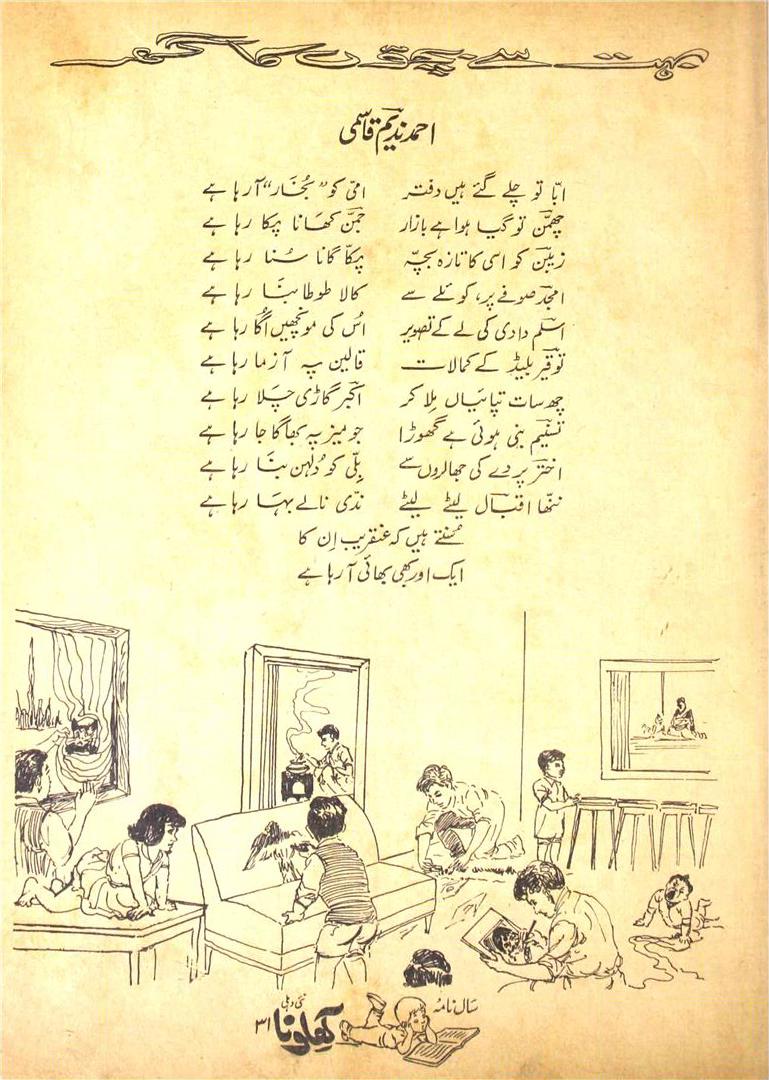 بہت سے بچوں کا گھر
احمد ندیم قاسمی
ابّا تو چلے گئے ہیں دفتر امّی کو ”بُخار“ آ رہا ہے
چھمّن تو گیا ہوا ہے بازار جمّن کھانا پکا رہا ہے
زیبن کو اسی کا تازہ بچّہ پکّا گانا سُنا رہا ہے
امجد صوفے پر، کوئلے سے کالا طوطا بنا رہا ہے
اسلم دادی کی لے کے تصویر اُس کی مونچھیں اُگا رہا ہے
توقیر بلیڈ کے کمالات قالین پہ آزما رہا ہے
چھ سات تپائیاں مِلا کر اکبر گاڑی چلا رہا ہے
تسنیم بنی ہوئی ہے گھوڑا جو میز پہ بھاگا جا رہا ہے
اختر پردے کی جھالروں سے بِلّی کو دُلہن بنا رہا ہے
ننھا اقبال لیٹے لیٹے ندّی نالے بہا رہا ہے
سُنتے ہیں کہ عنقریب اِن کا
ایک اور بھی بھائی آ رہا ہے
سالنامہ کھلونا نئی دہلی ۳۱